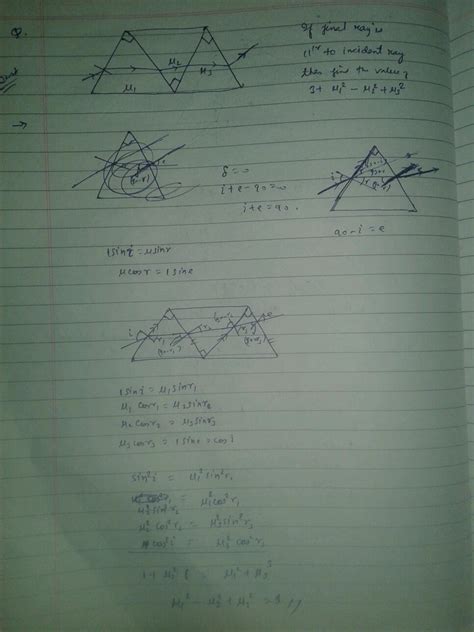 Q.
If final ray is
11^er to incident ray
then find the value of
3 + μ₁² - μ₂² + μ₃²
μ₁ μ₂ μ₃
→
δ = 0
i + e - 90 = 0
i + e = 90
90 - i = e
1 sin i = μ sin r
μ cos r = 1 sin e
1 sin i = μ₁ sin r₁
μ₁ cos r₁ = μ₂ sin r₂
μ₂ cos r₂ = μ₃ sin r₃
μ₃ cos r₃ = 1 sin e = cos i
sin² i = μ₁² sin² r₁
μ₂² sin² r₂ = μ₁² cos² r₁
μ₂² cos² r₂ = μ₃² sin² r₃
cos² i = μ₃² cos² r₃